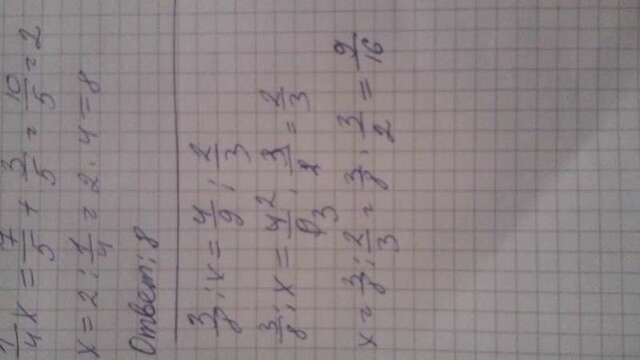 1/4 x = 7/5 + 3/5 = 10/5 = 2
x = 2 : 1/4 = 2 · 4 = 8
Ответ: 8
3/8 : x = 4/9 : 2/3
3/8 : x = 4²/9 3 · 3/2 = 2/3
x = 3/8 : 2/3 = 3/8 · 3/2 = 9/16